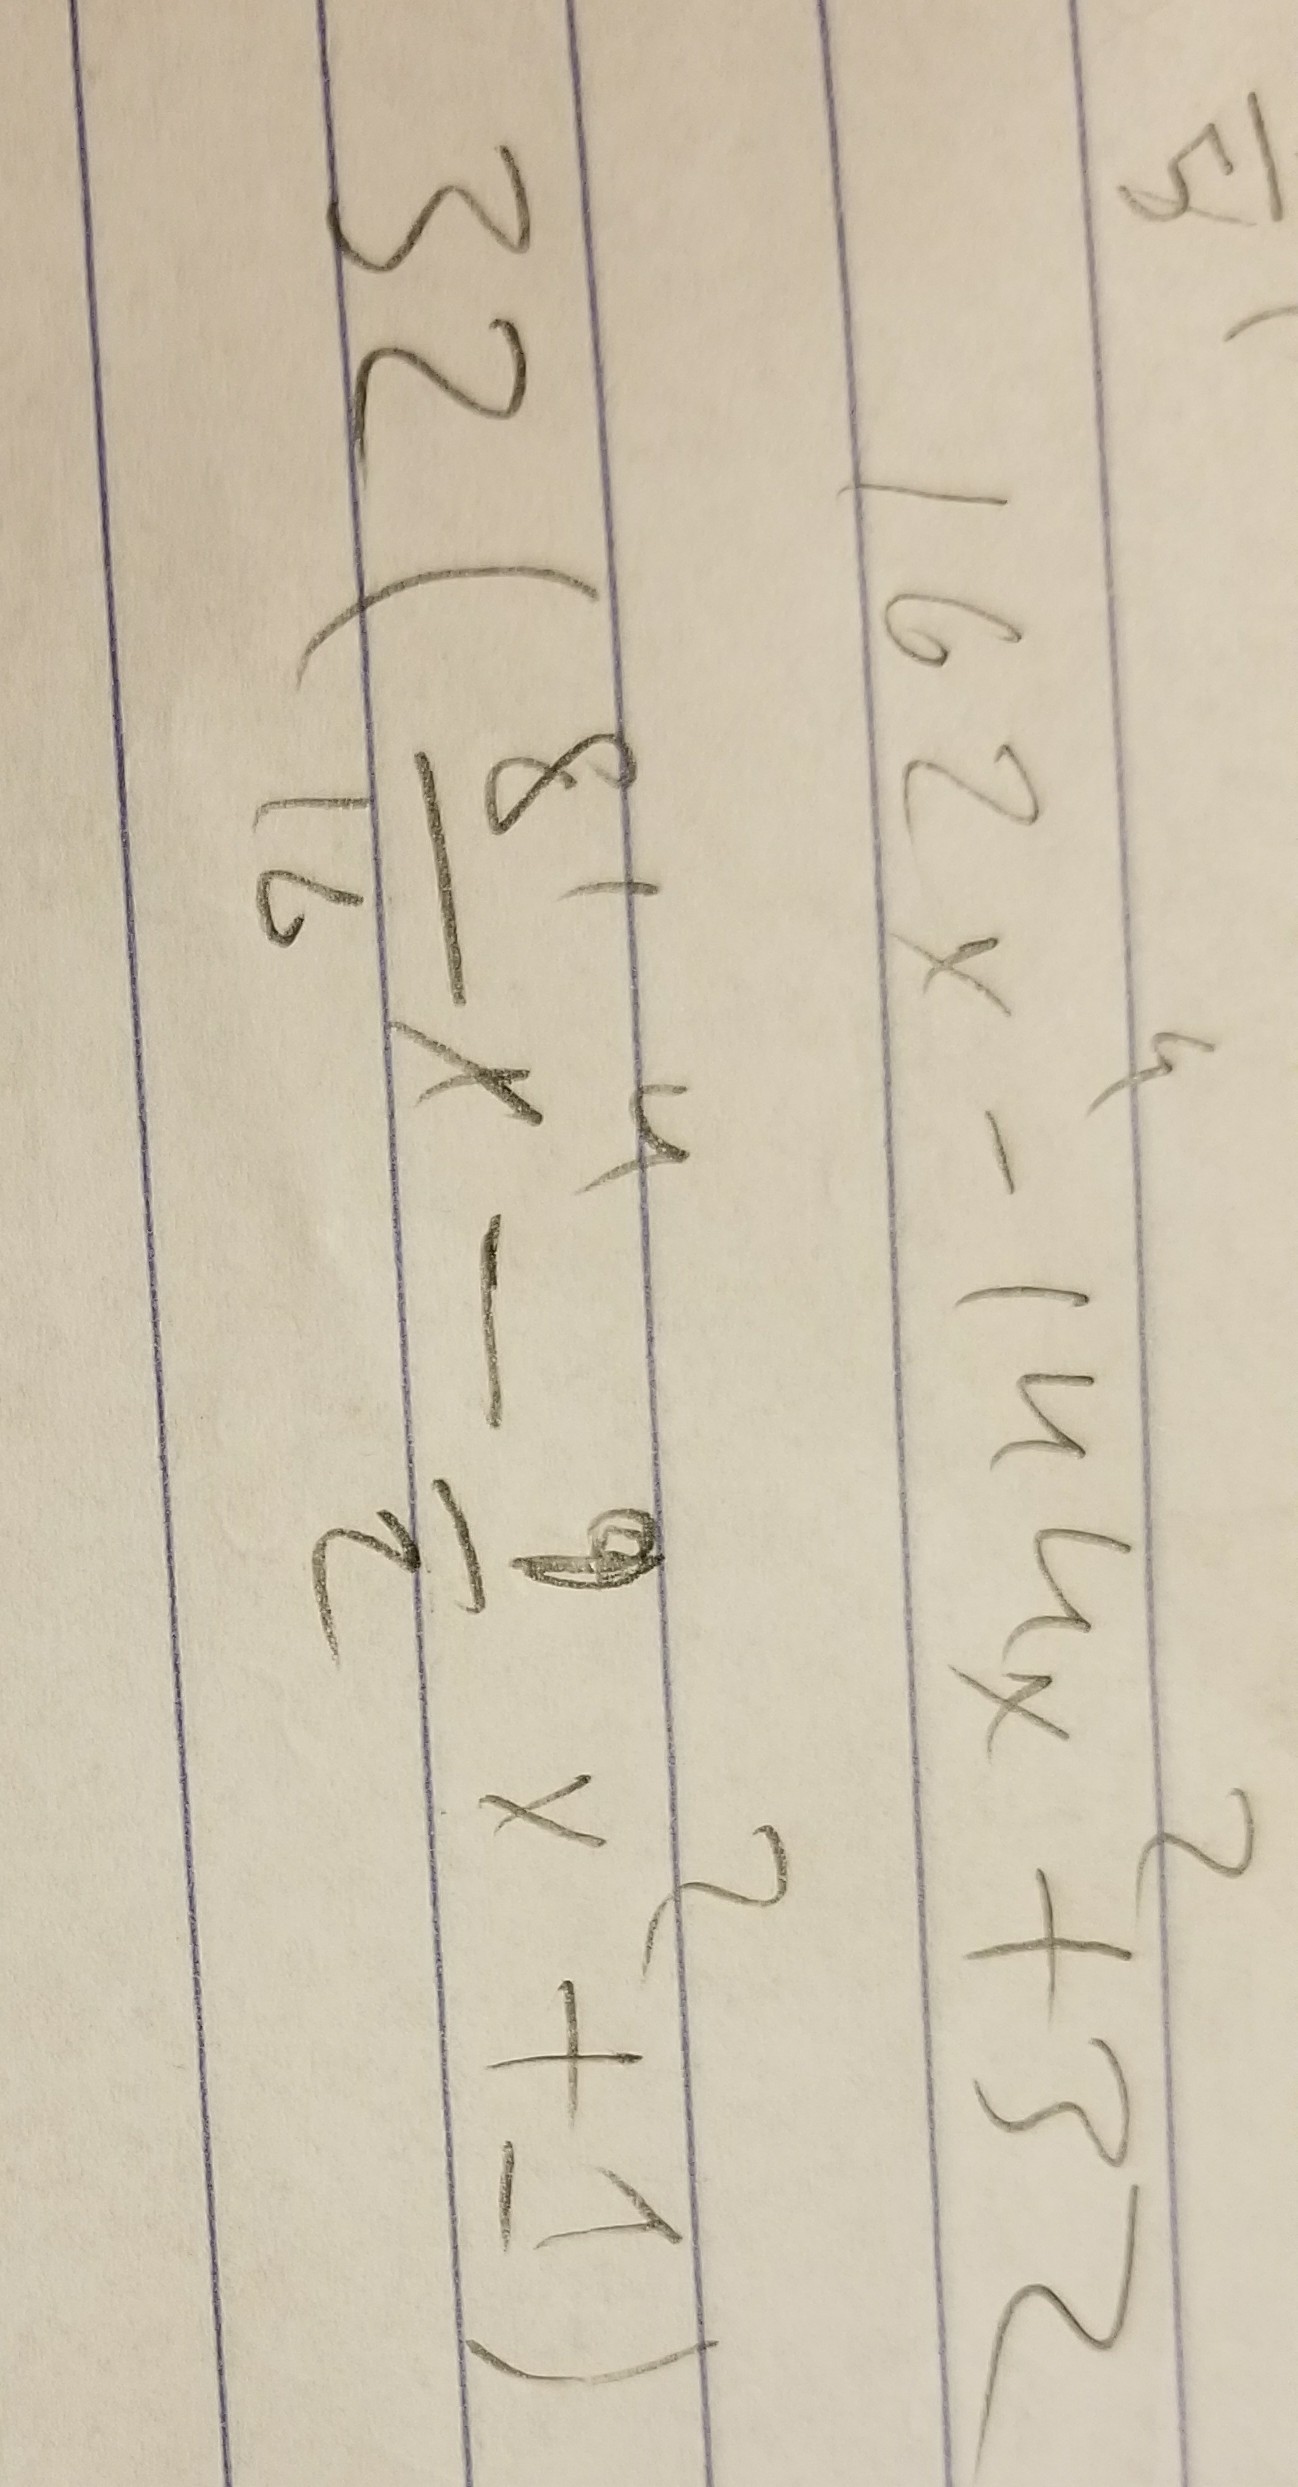 5
162x⁴ - 144x² + 32
32 ( 81/16 x⁴ - 9/2 x² + 1 )